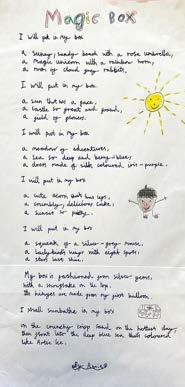 Magic Box
I will put in my box
a sunny, sandy beach with a rose umbrella,
a magic unicorn with a rainbow horn,
a room of cloud grey rabbits,
I will put in my box
a sun that has a face,
a castle so great and proud,
a field of planets.
I will put in my box
a meadow of adventures,
a sea so deep and being blue,
a door made of silk coloured iris - purple.
I will put in my box
a cute acorn that has legs,
a crumbly, delicious cake,
a sunset so pretty.
I will put in my box
a squeak of a silver-grey mouse,
a ladybird with eight spots,
a star's last shine.
My box is fashioned from silver gems,
with a sunflake on the top,
its hinges are made from my first balloon.
I shall sunbathe in my box
on the crunchy crisp sand on the hottest day,
then float into the deep blue sea that's coloured
like Arctic ice.